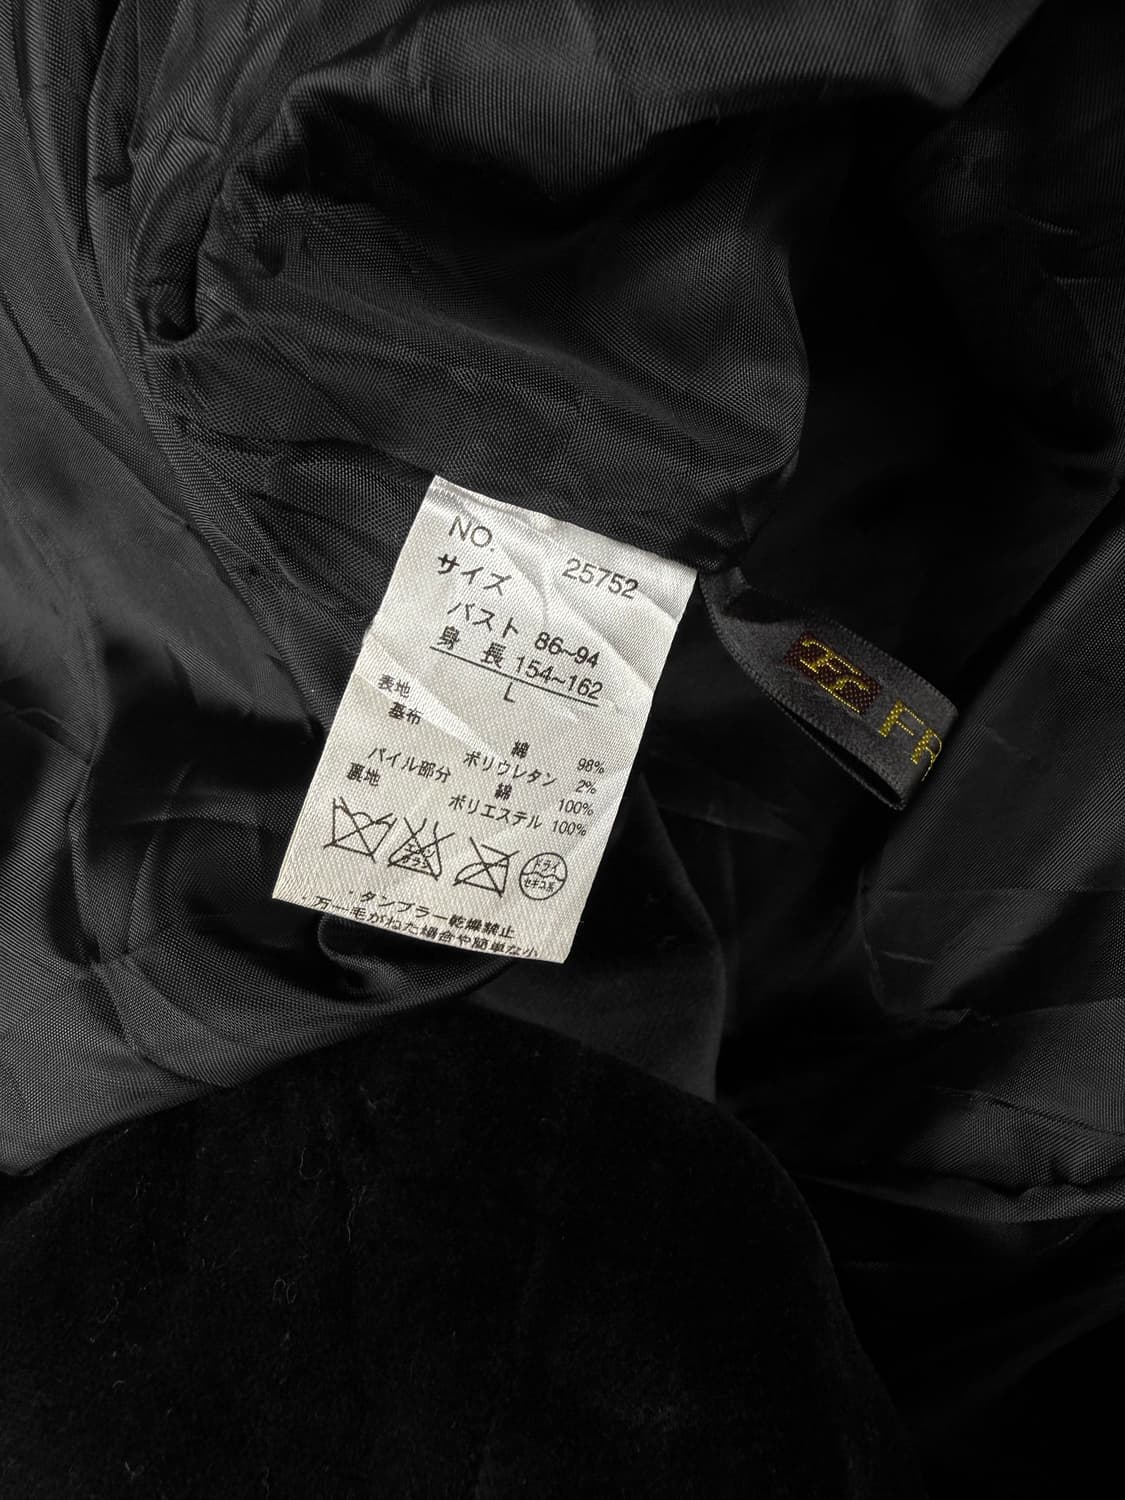 NO. 25752
サイズ
バスト 86~94
身長 154~162
L
表地
基布 綿 98%
ポリウレタン 2%
パイル部分 綿 100%
裏地 ポリエステル 100%
エンソ
サラシ
ドライ
セキユ系
・タンブラー乾燥禁止
・万一毛がねた場合や簡単な小
FR